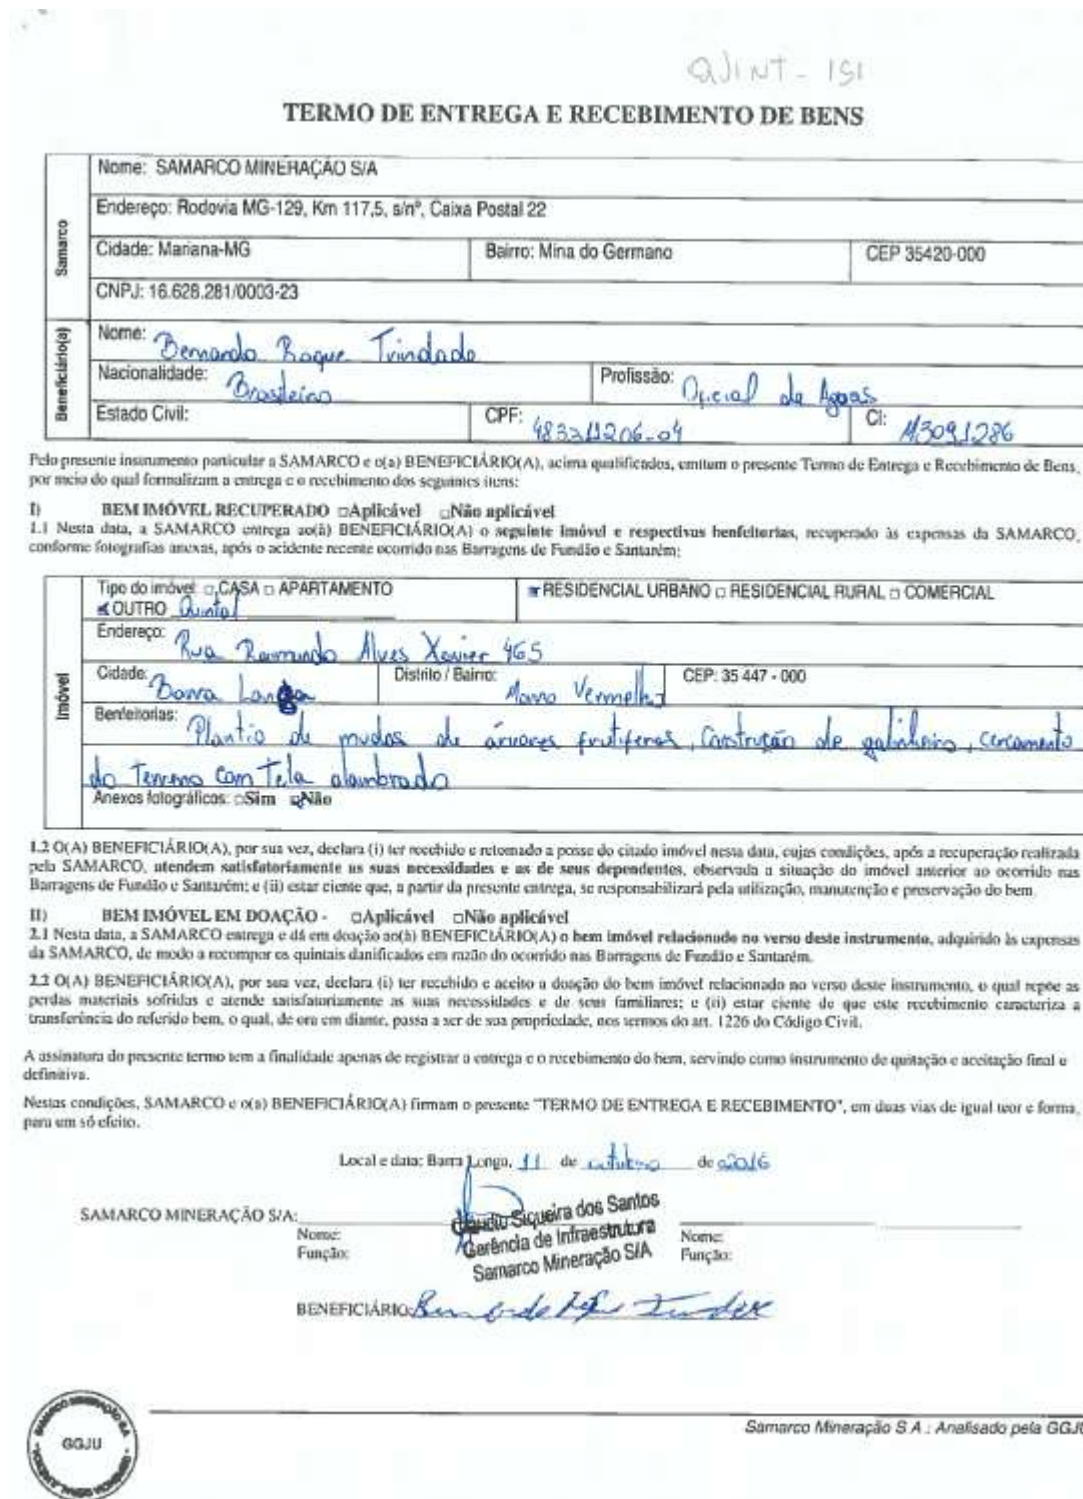 QUINT - 151
TERMO DE ENTREGA E RECEBIMENTO DE BENS
Samarco
Nome: SAMARCO MINERAÇÃO S/A
Endereço: Rodovia MG-129, Km 117,5, s/nº, Caixa Postal 22
Cidade: Mariana-MG Bairro: Mina do Germano CEP 35420-000
CNPJ: 16.628.281/0003-23
Beneficiário(a)
Nome: Bernardo Roque Trindade
Nacionalidade: Brasileiro Profissão: Oficial de Águas
Estado Civil: CPF: 483211206-04 CI: M3091286
Pelo presente instrumento particular a SAMARCO e o(a) BENEFICIÁRIO(A), acima qualificados, emitem o presente Termo de Entrega e Recebimento de Bens,
por meio do qual formalizam a entrega e o recebimento dos seguintes itens:
I) BEM IMÓVEL RECUPERADO □Aplicável □Não aplicável
1.1 Nesta data, a SAMARCO entrega ao(à) BENEFICIÁRIO(A) o seguinte imóvel e respectivas benfeitorias, recuperado às expensas da SAMARCO,
conforme fotografias anexas, após o acidente recente ocorrido nas Barragens de Fundão e Santarém:
Imóvel
Tipo do imóvel: □ CASA □ APARTAMENTO RESIDENCIAL URBANO □ RESIDENCIAL RURAL □ COMERCIAL
OUTRO Quintal
Endereço: Rua Raimundo Alves Xavier 465
Cidade: Barra Longa Distrito / Bairro: Morro Vermelho CEP: 35 447 - 000
Benfeitorias: Plantio de mudas de árvores frutíferas, Construção de galinheiro, cercamento
do Terreno com Tela alambrado
Anexos fotográficos: □Sim □Não
1.2 O(A) BENEFICIÁRIO(A), por sua vez, declara (i) ter recebido e retomado a posse do citado imóvel nesta data, cujas condições, após a recuperação realizada
pela SAMARCO, atendem satisfatoriamente as suas necessidades e as de seus dependentes, observada a situação do imóvel anterior ao ocorrido nas
Barragens de Fundão e Santarém; e (ii) estar ciente que, a partir da presente entrega, se responsabilizará pela utilização, manutenção e preservação do bem.
II) BEM IMÓVEL EM DOAÇÃO - □Aplicável □Não aplicável
2.1 Nesta data, a SAMARCO entrega e dá em doação ao(à) BENEFICIÁRIO(A) o bem imóvel relacionado no verso deste instrumento, adquirido às expensas
da SAMARCO, de modo a recompor os quintais danificados em razão do ocorrido nas Barragens de Fundão e Santarém.
2.2 O(A) BENEFICIÁRIO(A), por sua vez, declara (i) ter recebido e aceito a doação do bem imóvel relacionado no verso deste instrumento, o qual repõe as
perdas materiais sofridas e atende satisfatoriamente as suas necessidades e de seus familiares; e (ii) estar ciente de que este recebimento caracteriza a
transferência do referido bem, o qual, de ora em diante, passa a ser de sua propriedade, nos termos do art. 1226 do Código Civil.
A assinatura do presente termo tem a finalidade apenas de registrar a entrega e o recebimento do bem, servindo como instrumento de quitação e aceitação final e
definitiva.
Nestas condições, SAMARCO e o(a) BENEFICIÁRIO(A) firmam o presente "TERMO DE ENTREGA E RECEBIMENTO", em duas vias de igual teor e forma,
para um só efeito.
Local e data: Barra Longa, 11 de outubro de 2016
SAMARCO MINERAÇÃO S/A:
Claudio Siqueira dos Santos
Gerência de Infraestrutura
Samarco Mineração S/A
Nome: Nome:
Função: Função:
BENEFICIÁRIO: Bernardo Roque Trindade
SAMARCO MINERAÇÃO S.A.
GGJU
Samarco Mineração S.A.: Analisado pela GGJU